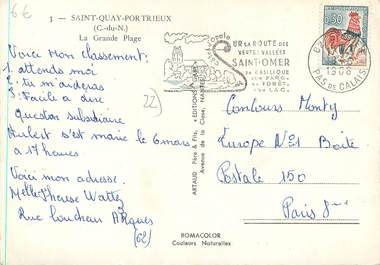 6€
3 - SAINT-QUAY-PORTRIEUX
(C.-du-N.)
La Grande Plage
Voici mon classement:
1. attends moi
2. tu m'aideras
3. Facile a dire
22)
Question subsidiaire
Hubert s'est marié le 6 mars
a 17 heures
Voici mon adresse.
Melle Therese Wattez
Rue Loucheur Arques
(62)
ARTAUD Père & Fils, ÉDITIONS
Avenue de la Close, NANTES
SUR LA ROUTE DES
VERTES VALLÉES
SAINT-OMER
SA BASILIQUE
SON PARC
SA FORÊT
SON LAC
62
1966
PAS DE CALAIS
0,30
Concours Monty
Europe N°1 Boite
Postale 150
Paris 8eme
ROMACOLOR
Couleurs Naturelles